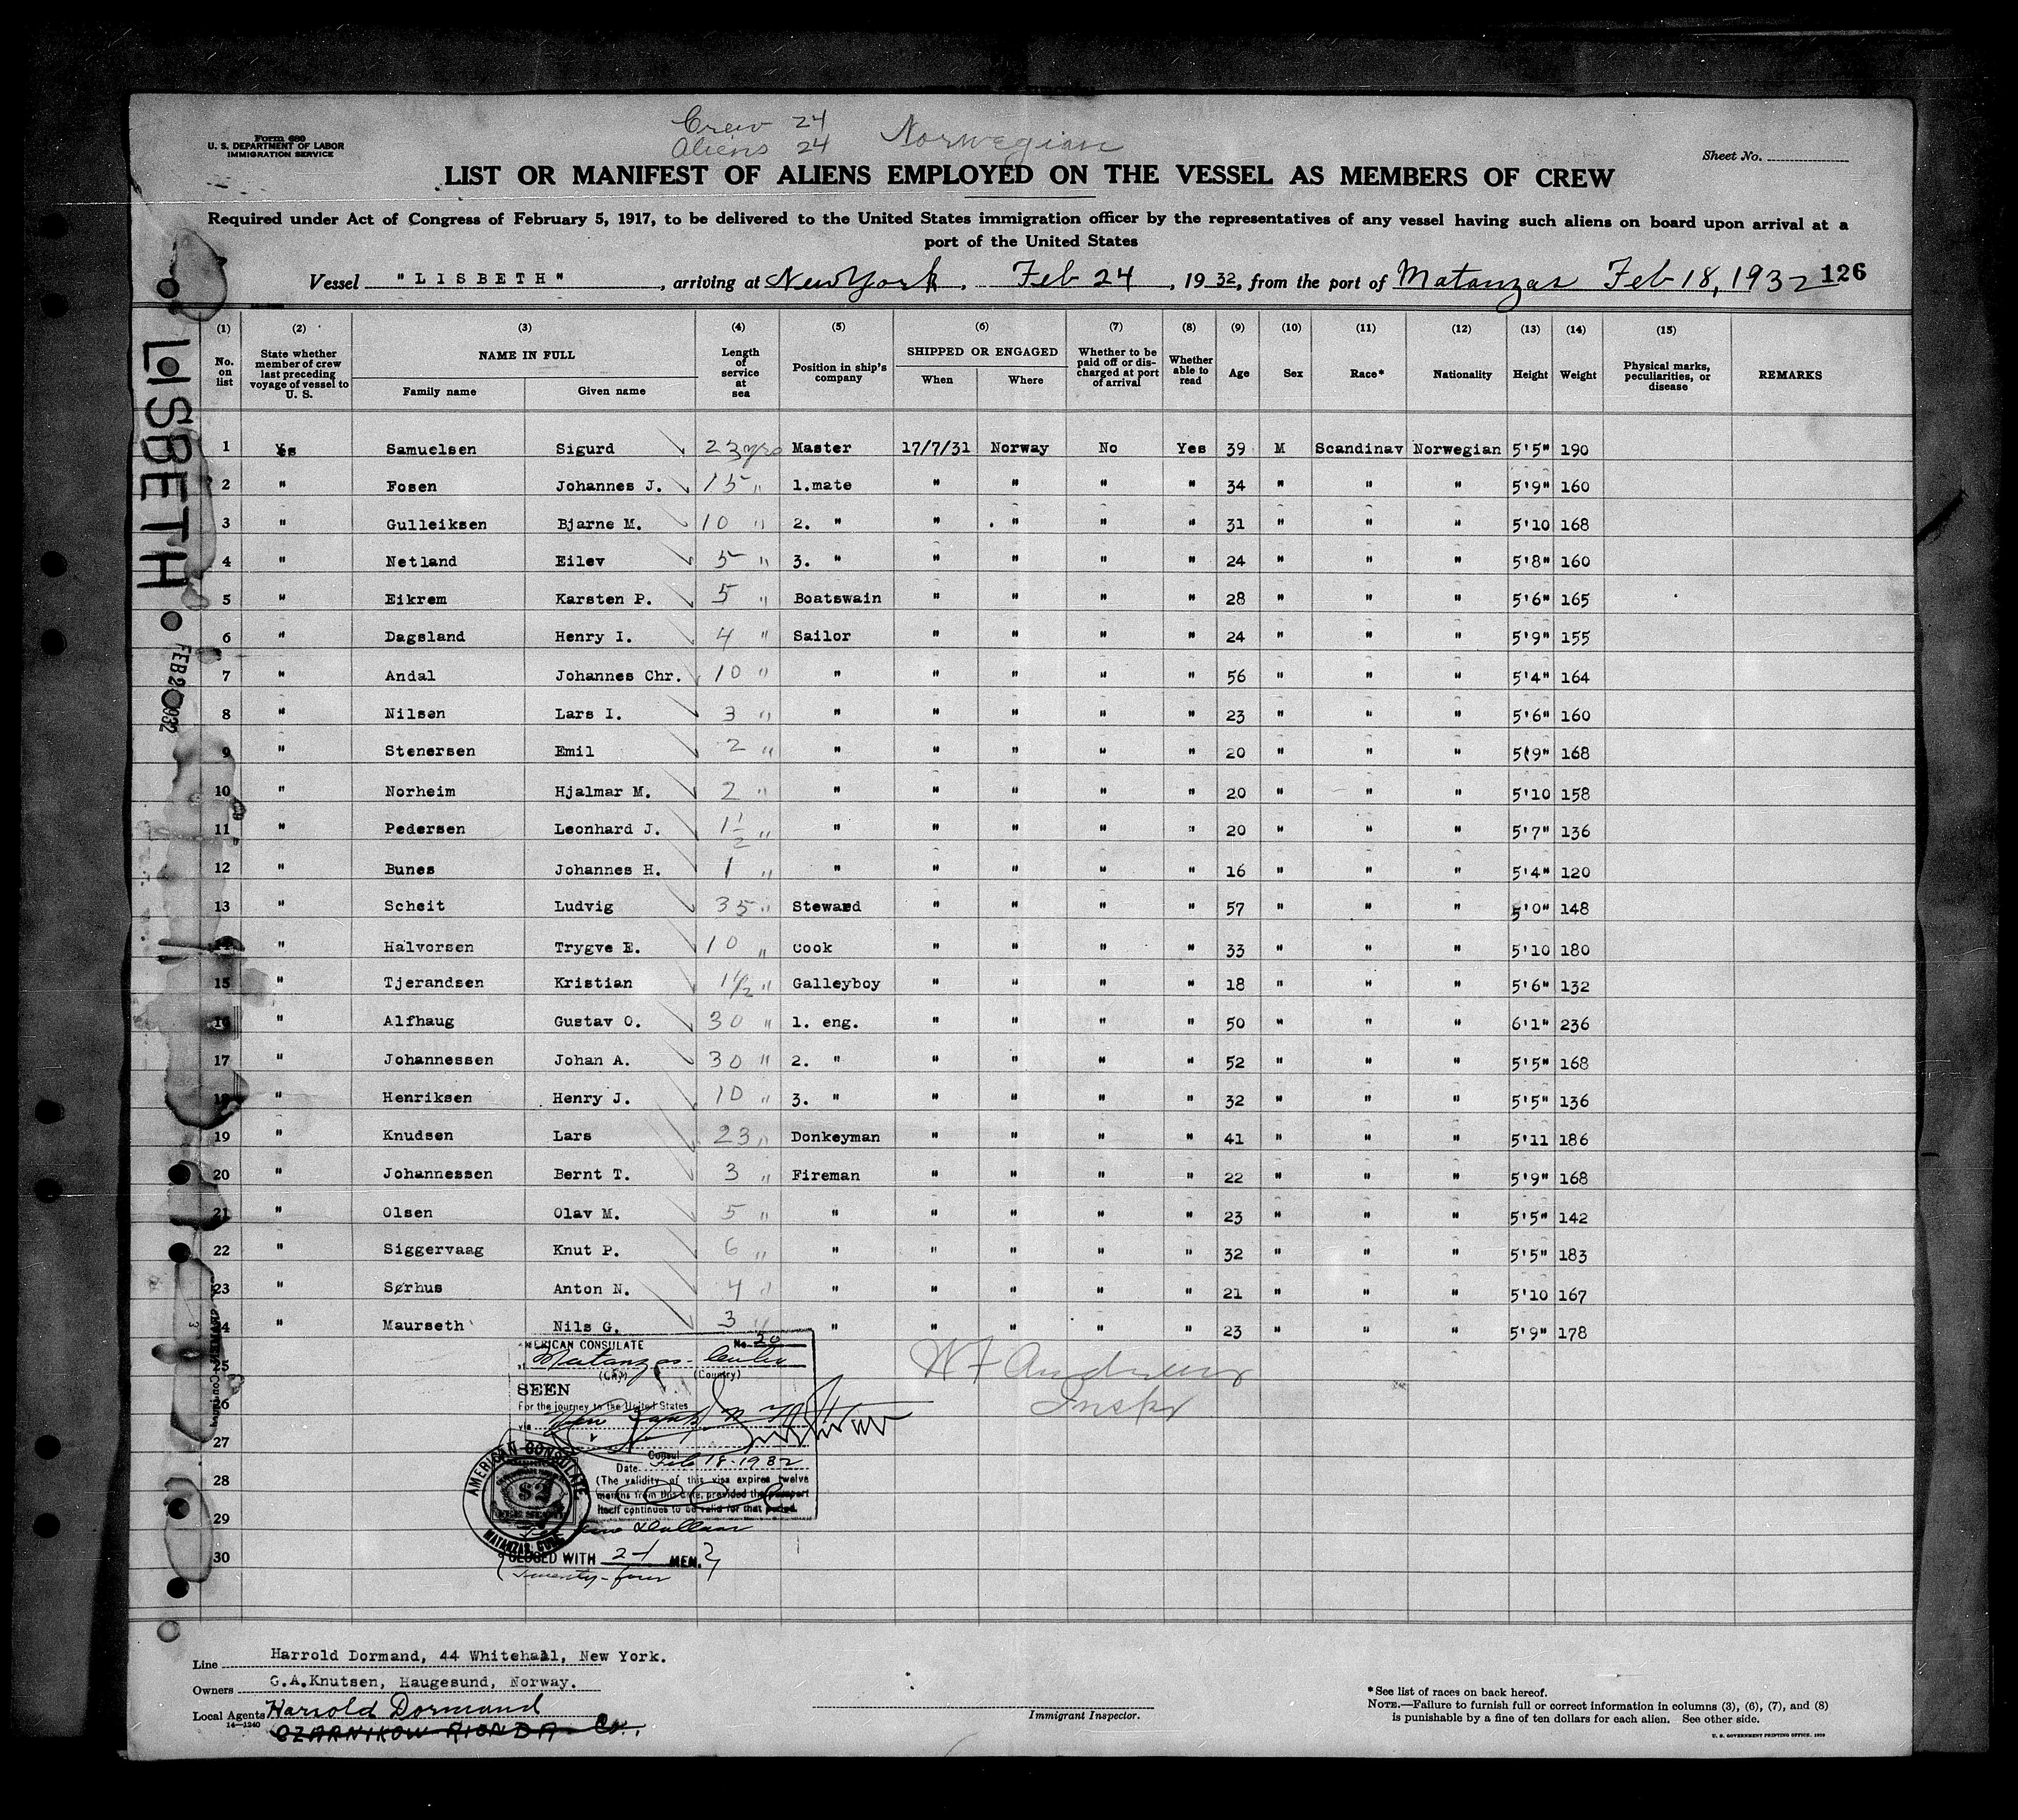 Crew 24
Aliens 24
Norwegian
Form 680
U. S. DEPARTMENT OF LABOR
IMMIGRATION SERVICE
Sheet No.
LIST OR MANIFEST OF ALIENS EMPLOYED ON THE VESSEL AS MEMBERS OF CREW
Required under Act of Congress of February 5, 1917, to be delivered to the United States immigration officer by the representatives of any vessel having such aliens on board upon arrival at a
port of the United States
Vessel "LISBETH", arriving at New York, Feb 24, 1932, from the port of Matanzas Feb 18, 1932 126
(1) (2) (3) (4) (5) (6) (7) (8) (9) (10) (11) (12) (13) (14) (15)
No. on list State whether member of crew last preceding voyage of vessel to U. S. NAME IN FULL Family name Given name Length of service at sea Position in ship's company SHIPPED OR ENGAGED When Where Whether to be paid off or discharged at port of arrival Whether able to read Age Sex Race* Nationality Height Weight Physical marks, peculiarities, or disease REMARKS
1 Yes Samuelsen Sigurd 23 yrs Master 17/7/31 Norway No Yes 39 M Scandinav Norwegian 5'5" 190
2 " Fosen Johannes J. 15 " 1.mate " " " " 34 " " " 5'9" 160
3 " Gulleiksen Bjarne M. 10 " 2. " " " " " 31 " " " 5'10 168
4 " Netland Eilev 5 " 3. " " " " " 24 " " " 5'8" 160
5 " Eikrem Karsten P. 5 " Boatswain " " " " 28 " " " 5'6" 165
6 " Dagsland Henry I. 4 " Sailor " " " " 24 " " " 5'9" 155
7 " Andal Johannes Chr. 10 " " " " " " 56 " " " 5'4" 164
8 " Nilsen Lars I. 3 " " " " " " 23 " " " 5'6" 160
9 " Stenersen Emil 2 " " " " " " 20 " " " 5'9" 168
10 " Norheim Hjalmar M. 2 " " " " " " 20 " " " 5'10 158
11 " Pedersen Leonhard J. 1 1/2 " " " " " " 20 " " " 5'7" 136
12 " Bunes Johannes H. 1 " " " " " " 16 " " " 5'4" 120
13 " Scheit Ludvig 35 " Steward " " " " 57 " " " 5'0" 148
14 " Halvorsen Trygve E. 10 " Cook " " " " 33 " " " 5'10 180
15 " Tjerandsen Kristian 1 1/2 " Galleyboy " " " " 18 " " " 5'6" 132
16 " Alfhaug Gustav O. 30 " 1. eng. " " " " 50 " " " 6'1" 236
17 " Johannessen Johan A. 30 " 2. " " " " " 52 " " " 5'5" 168
18 " Henriksen Henry J. 10 " 3. " " " " " 32 " " " 5'5" 136
19 " Knudsen Lars 23 " Donkeyman " " " " 41 " " " 5'11 186
20 " Johannessen Bernt T. 3 " Fireman " " " " 22 " " " 5'9" 168
21 " Olsen Olav M. 5 " " " " " " 23 " " " 5'5" 142
22 " Siggervaag Knut P. 6 " " " " " " 32 " " " 5'5" 183
23 " Sørhus Anton N. 4 " " " " " " 21 " " " 5'10 167
24 " Maurseth Nils G. 3 " " " " " " 23 " " " 5'9" 178
25
26
27
28
29
30
LISBETH
AMERICAN CONSULATE No. 20
at Matanzas - Cuba
(City) (Country)
SEEN
For the journey to the United States
via New York
Consul
Date Feb 18-1932
(The validity of this visa expires twelve
months from this date, provided the passport
itself continues to be valid for that period.
AMERICAN CONSULATE
$2
MATANZAS, CUBA
CLOSED WITH 24 MEN.
Twenty-four
W F Andrews
Inspr
Line Harrold Dormand, 44 Whitehall, New York.
Owners G.A.Knutsen, Haugesund, Norway.
Local Agents Harrold Dormand
14—1240
CZARNIKOW RIONDA Co.
Immigrant Inspector.
*See list of races on back hereof.
NOTE.—Failure to furnish full or correct information in columns (3), (6), (7), and (8)
is punishable by a fine of ten dollars for each alien. See other side.
U. S. GOVERNMENT PRINTING OFFICE. 1929